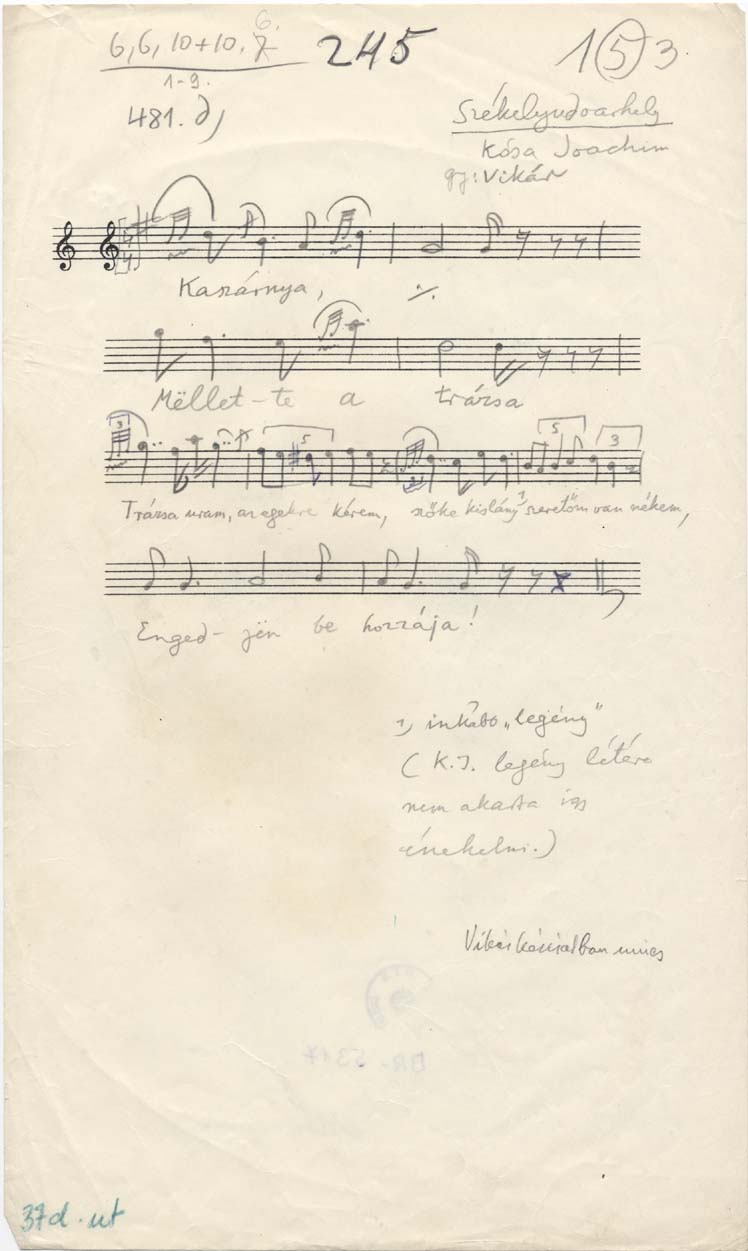 6.
6, 6, 10+10, 7.
245
1 5 3.
1-9.
481. d)
Székelyudvarhely
Kósa Joachim
gy: Vikár
Kaszárnya, ·/·
Mëllet-te a trázsa
3 5 5 3
Trázsa uram, az egekre kérem, szőke kislány 1) szeretőm van nékem,
Enged-jën be hozzája!
1) inkább „legény"
(K. J. legény létére
nem akarta így
énekelni.)
Vikár nincs
BR- 5317
37d. ut